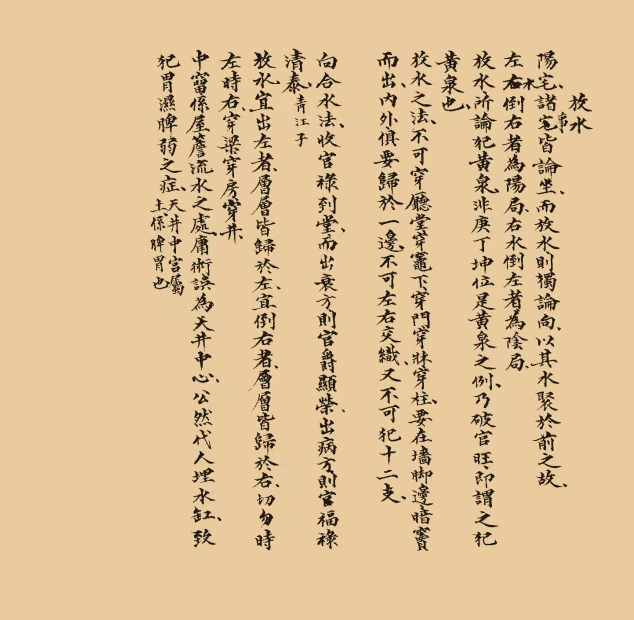 放水
陽宅諸宅事皆論坐、而放水則獨論向、以其水聚於前之故、
左水右倒右者為陽局、右水倒左者為陰局、
放水所論犯黃泉、非庚丁坤位是黃泉之例、乃破官旺、即謂之犯
黃泉也、
放水之法、不可穿廳堂穿竈下、穿門穿牀穿柱、要在墻脚邊暗竇
而出、內外俱要歸於一邊、不可左右交織、又不可犯十二支、
向合水法、收官祿到堂、而出衰方、則官爵顯榮、出病方、則官福祿
清泰、青江子
放水宜出左者、層層皆歸於左、宜倒右者、層層皆歸於右、切勿時
左時右、穿梁穿房穿井、
中窩係屋簷流水之處、庸術誤為天井中心、公然代人埋水缸、致
犯胃濕脾弱之症、天井中宮屬
土、係脾胃也